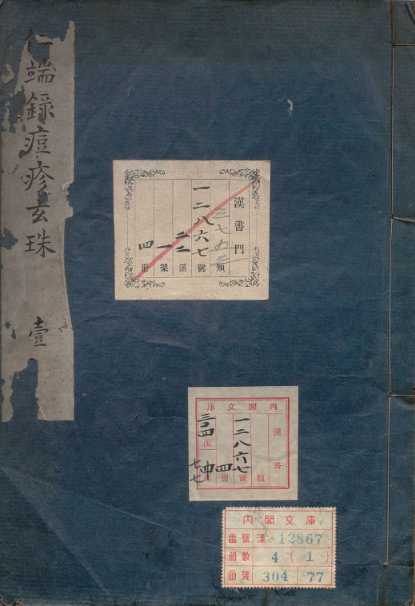 仁端錄痘疹玄珠 壹
漢書門
三七五二
一二八六七
二二
一
四
類
號
函
架
冊
內閣文庫
漢書
一二八六七
四冊
類號
三〇四
七七
內閣文庫
番號 漢 12867
冊數 4(1)
函號 304 77